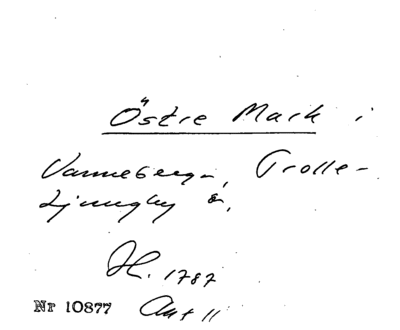 Östre Mark i
Vanneberga, Trolle-
Ljungby s.
H. 1787
Nr 10877 Akt 11